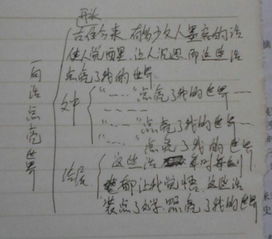 一句话点亮世界
开头
古往今来 有多少文人墨客的话
使人沉醉 让人沉思 而这些话
点亮了我的世界
文中
"……"点亮了我的世界……
……"点亮了我的世界
……"点亮了我的世界……
点亮了我的世界
结尾
这些话 时时
都让我觉悟 这些话
装点了 照亮了我的世界